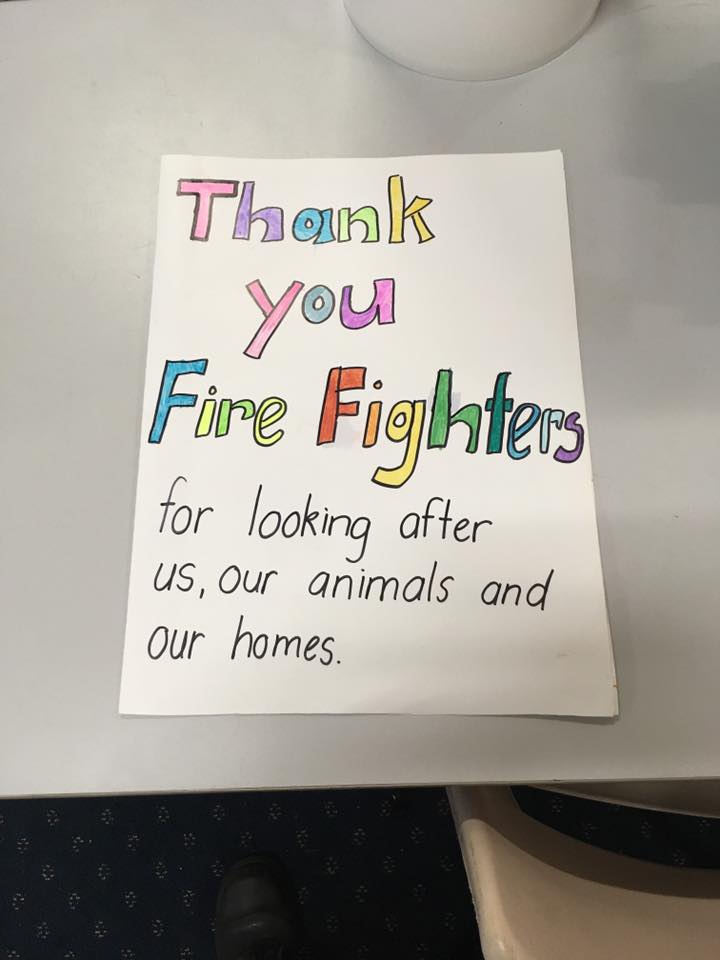 Thank
you
Fire Fighters
for looking after
us, our animals and
our homes.